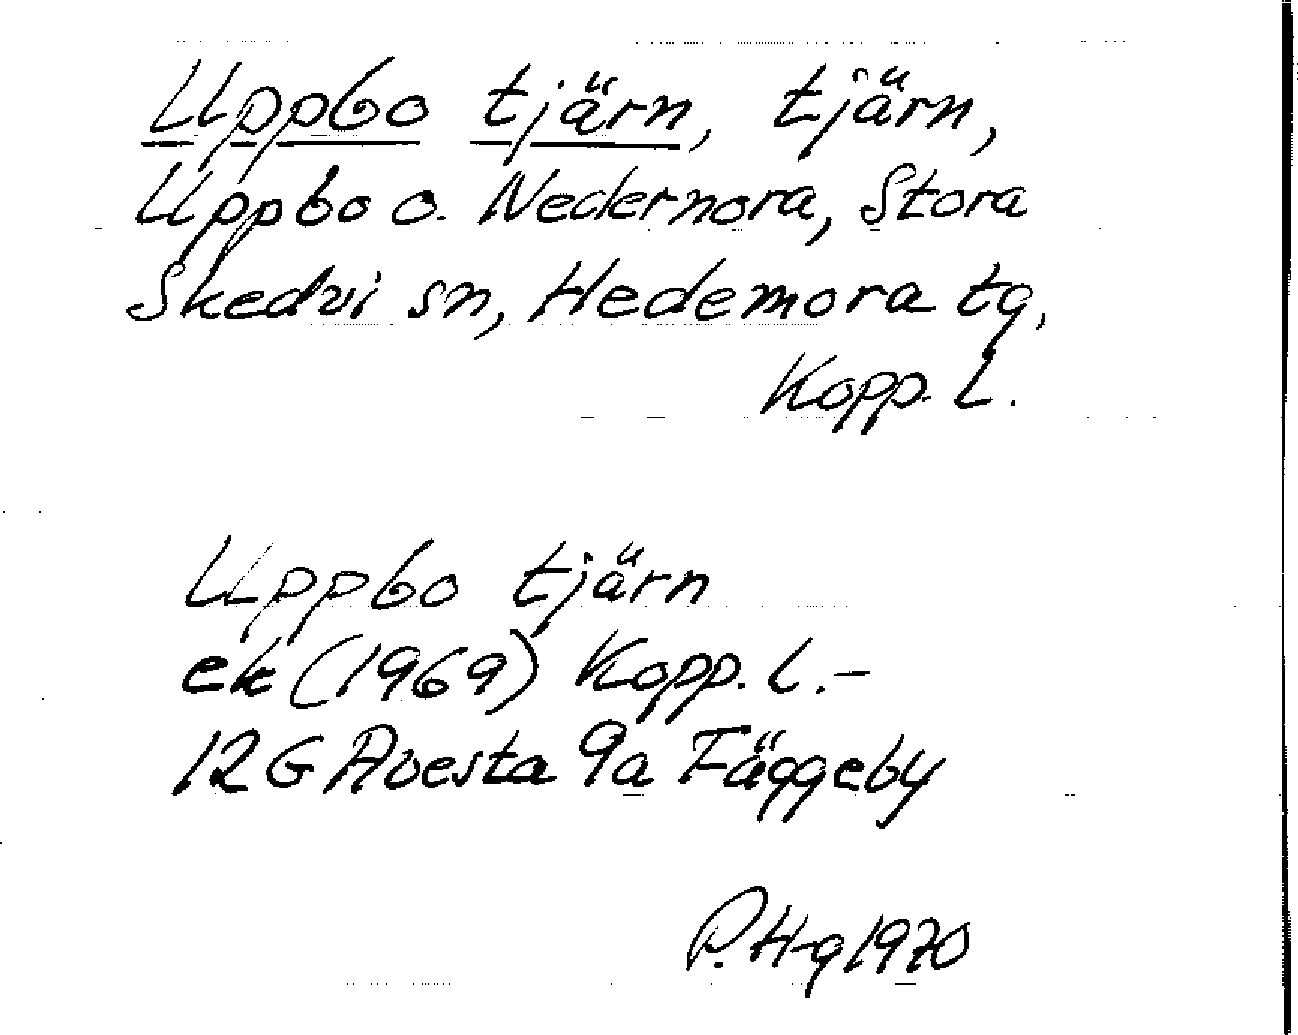 Uppbo tjärn, tjärn,
Uppbo o. Nedernora, Stora
Skedvi sn, Hedemora tg,
Kopp. L.
Uppbo tjärn
ek (1969) Kopp. L.-
12 G Avesta 9a Fäggeby
P. H-g 1970